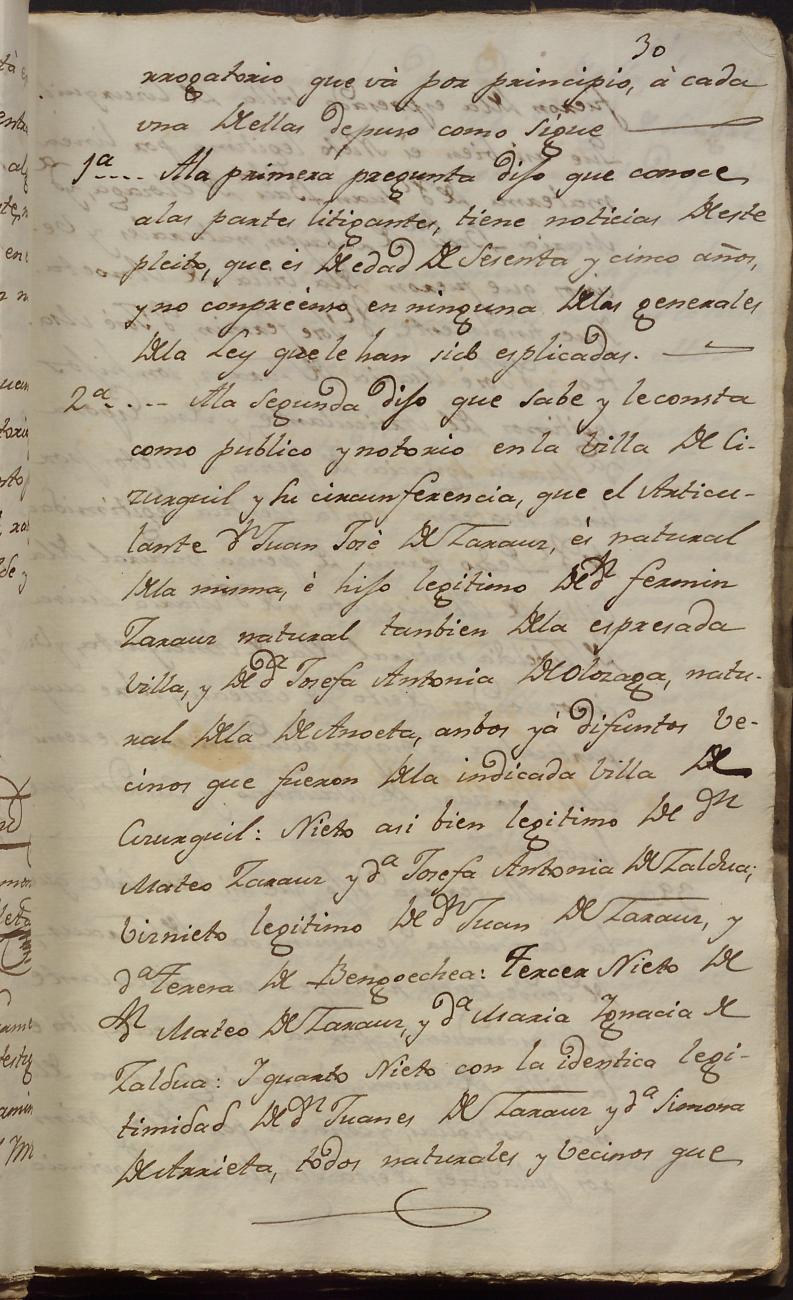 30
rrogatorio que và por principio, à cada
vna De ellas depuso como sigue
1ª.... Ala primera pregunta dijo que conoce
alas partes litigantes, tiene noticias De este
pleito, que és De edad De Sesenta y cinco años,
y no conpreénso en ninguna Delas generales
Dela Ley que le han sido esplicadas.
2ª.... Ala Segunda dijo que sabe y le consta
como publico y notorio en la Villa De Ci-
zurguil y su circunferencia, que el Articu-
lante Dⁿ Juan José De Zaraur, és natural
Dela misma, é hijo legitimo De dⁿ fermin
Zaraur natural tanbien Dela espresada
Villa, y De dª Josefa Antonia De Olozaga, natu-
ral Dela De Anoeta, anbos yá difuntos Ve-
cinos que fueron Dela indicada Villa De
Cizurguil: Nieto asi bien legitimo De dⁿ
Mateo Zaraur y dª Josefa Antonia De Zaldua;
Virnieto legitimo De dⁿ Juan De Zaraur, y
dª Teresa De Bengoechea: Tercer Nieto De
dⁿ Mateo De Zaraur, y dª Maria Ygnacia De
Zaldua: Y quarto Nieto con la identica legi-
timidad De dⁿ Juanes De Zaraur y dª Simona
De Arrieta, todos naturales y Vecinos que